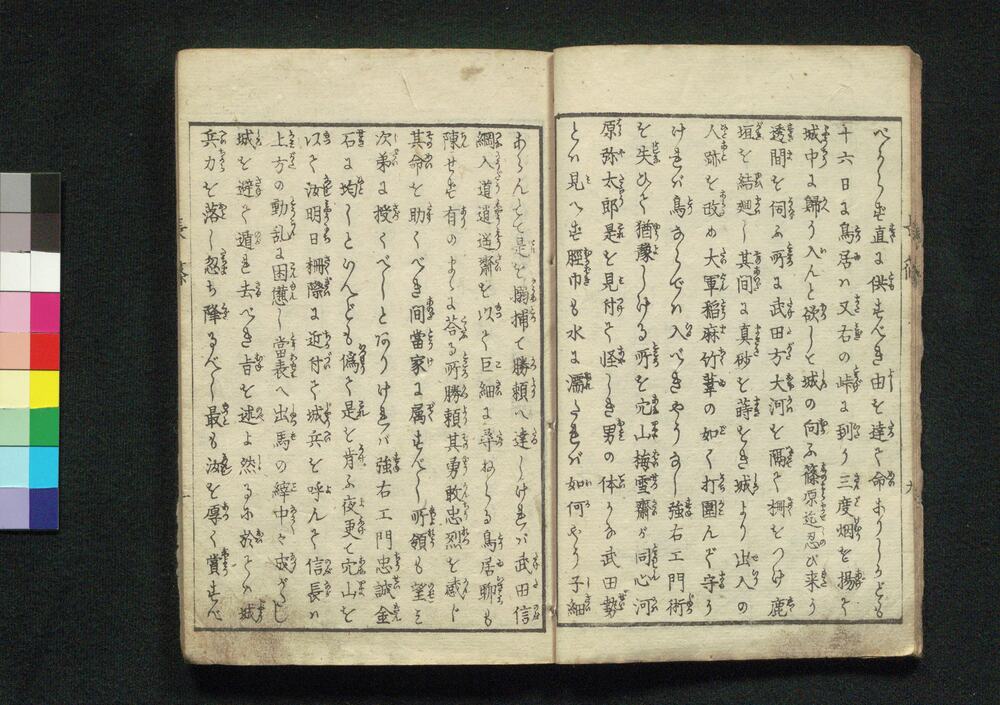 べからず直に供すべき由を達て命ありしかども
十六日に鳥居ハ又右の峠に到り三度烟を揚げて
城中に歸り入んと欲しと城の向ふ篠原迄忍び来り
透間を伺ふ所に武田方大河を隔て柵をつけ鹿
垣を結廻し其間に真砂を蒔とき城より出入の
人跡を改め大軍稲麻竹葦の如く打圍んで守り
けれバ鳥ならでハ入べきやうなし強右エ門術
を失ひて猶豫しける所を穴山梅雪齋が同心河
原弥太郎是を見付て怪しき男の体かな武田勢
とハ見へず脛巾も水に濡たれバ如何やう子細
あらんとて是を搦捕て勝頼へ達しけれバ武田信
綱入道逍遥齋を以て巨細に尋ねらる鳥居聊も
陳せず有のまゝに荅る所勝頼其勇敢忠烈を感じ
其命を助くべき間當家に属すべし所領も望み
次第に授くべしとありけれバ強右エ門忠誠金
石に均しといへども偽て是を肯ふ夜更て穴山を
以て汝明日柵際に近付て城兵を呼んで信長ハ
上方の動乱に困憊し當表へ出馬の䋖中々成がたし
城を避て遁れ去べき旨を述よ然るに於てハ城
兵力を落し忽ち降るべし最も汝を厚く賞すべ